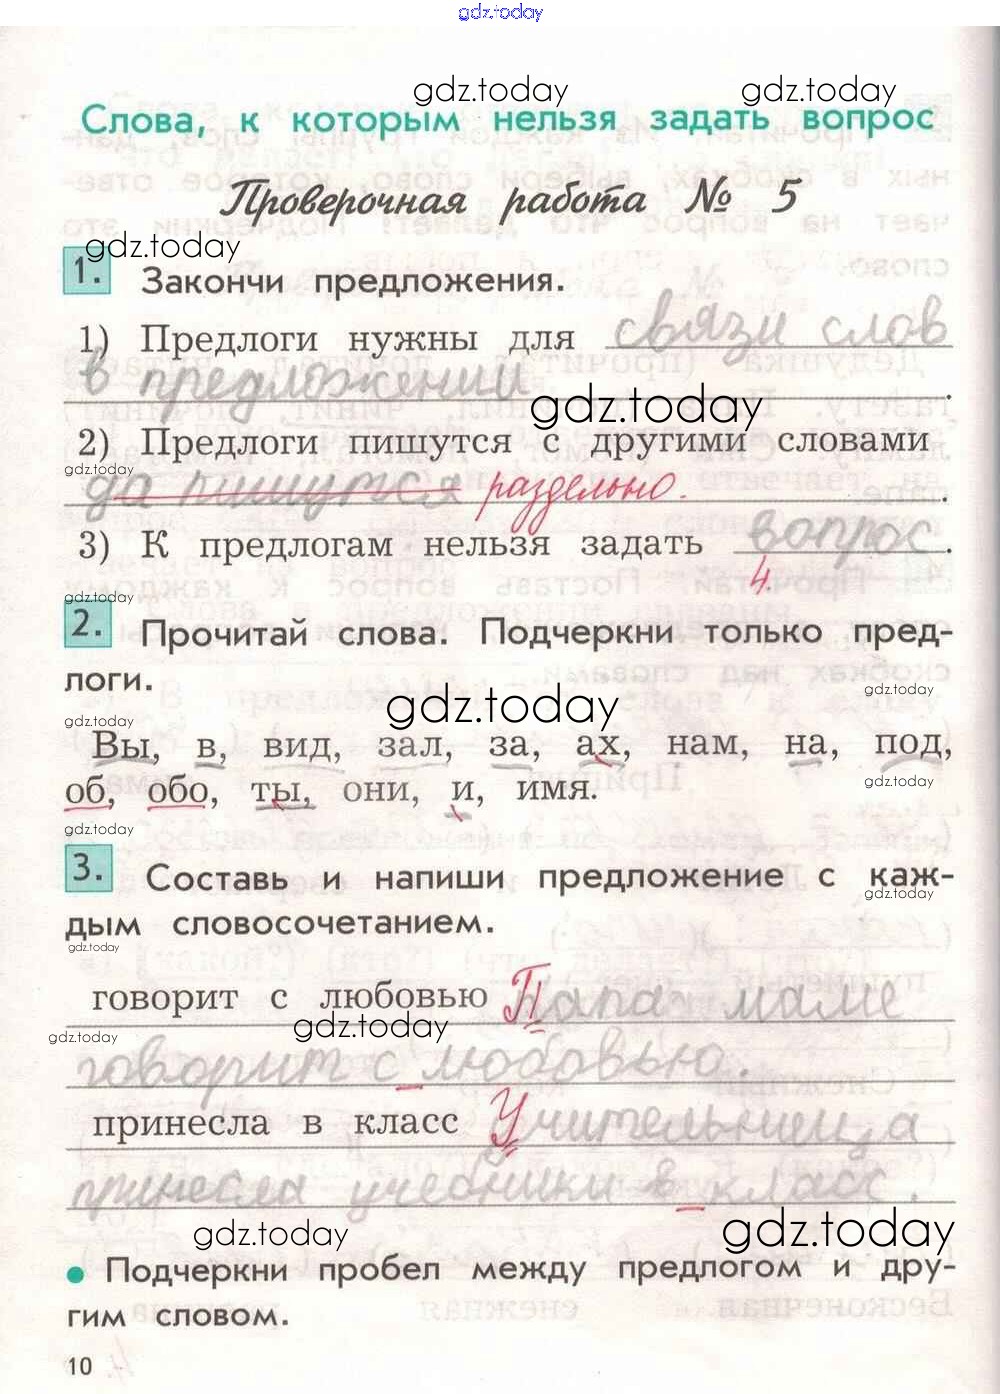 gdz.today
gdz.today gdz.today
Слова, к которым нельзя задать вопрос
Проверочная работа № 5
gdz.today
1. Закончи предложения.
1) Предлоги нужны для связи слов
в предложении.
gdz.today
2) Предлоги пишутся с другими словами
gdz.today
да пишутся раздельно.
3) К предлогам нельзя задать вопрос.
4.
gdz.today
2. Прочитай слова. Подчеркни только пред-
логи.
gdz.today gdz.today
gdz.today
Вы, в, вид, зал, за, ах, нам, на, под,
gdz.today
об, обо, ты, они, и, имя.
gdz.today
3. Составь и напиши предложение с каж-
gdz.today
дым словосочетанием.
gdz.today
говорит с любовью Папа маме
gdz.today gdz.today
говорит с любовью.
принесла в класс Учительница
принесла учебники в класс.
gdz.today gdz.today
● Подчеркни пробел между предлогом и дру-
гим словом.
10